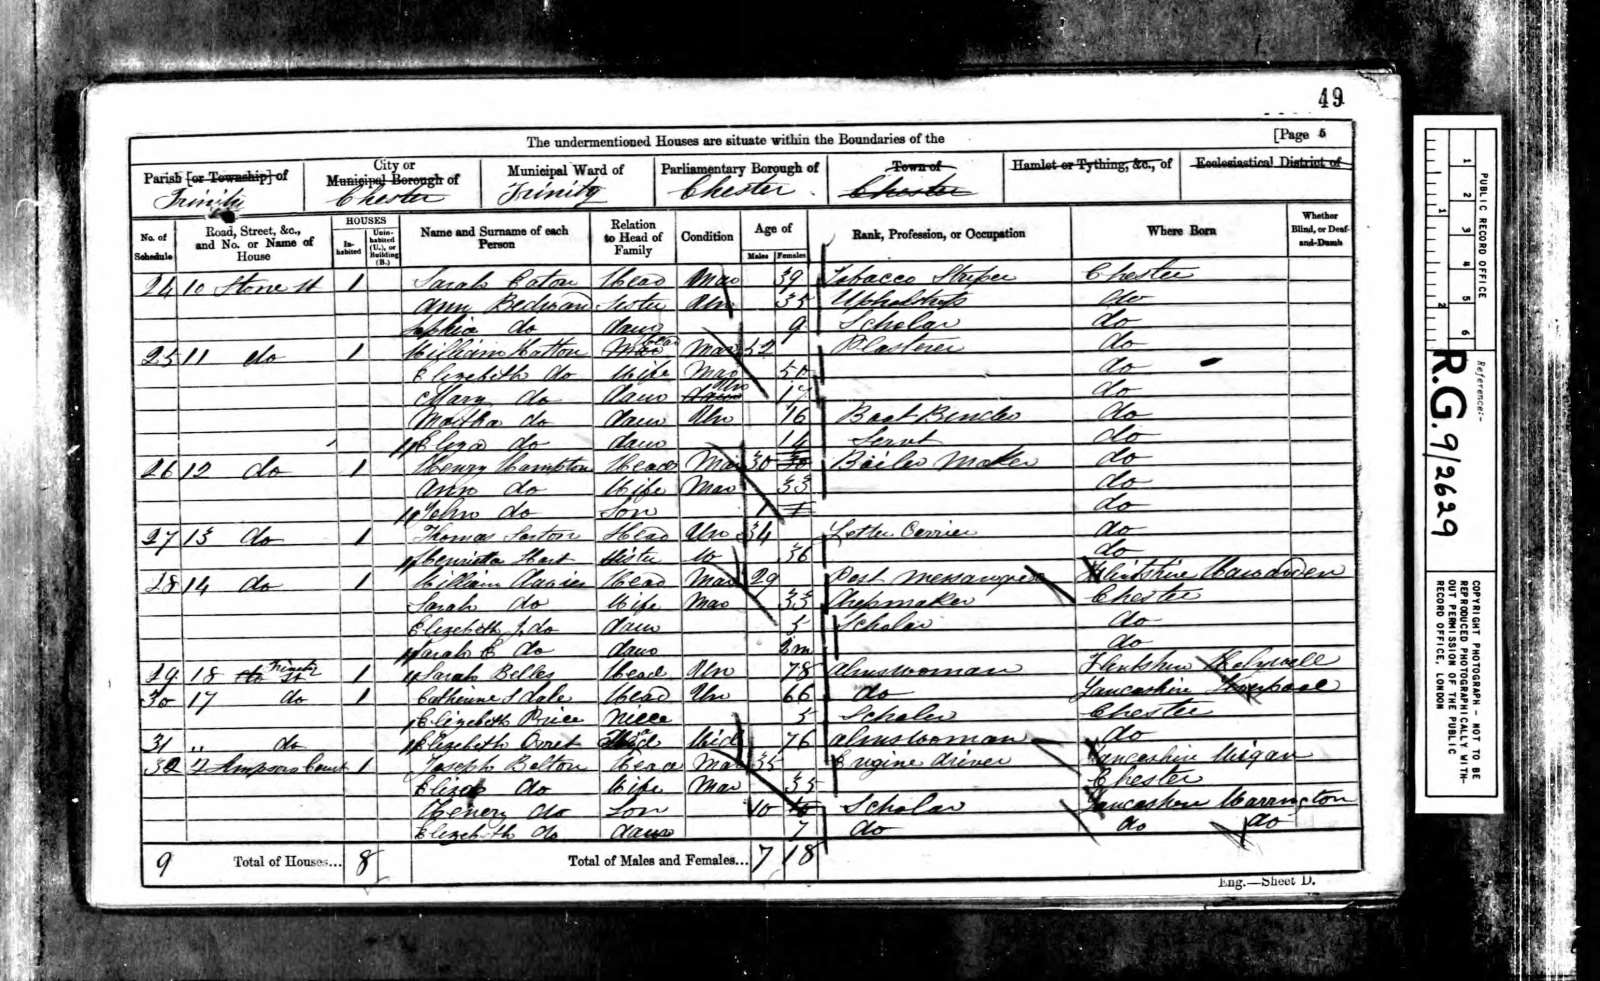 49
The undermentioned Houses are situate within the Boundaries of the [Page 5
Parish [or Township] of Trinity
City or Municipal Borough of Chester
Municipal Ward of Trinity
Parliamentary Borough of Chester
Town of Chester
Hamlet or Tything, &c., of
Ecclesiastical District of
No. of Schedule
Road, Street, &c., and No. or Name of House
HOUSES
Inhabited
Uninhabited (U.), or Building (B.)
Name and Surname of each Person
Relation to Head of Family
Condition
Age of
Males Females
Rank, Profession, or Occupation
Where Born
Whether Blind, or Deaf-and-Dumb
24 10 Stone St 1 Sarah Eaton Head Mar 39 Tobacco Striper Chester
Ann Sister Un 35 do
Sophia do daur 9 Scholar do
25 11 do 1 William Hatton Mar Head Mar 52 Plasterer do
Elizebeth do Wife Mar 50 do
Mary do daur Un 17 do
Martha do daur Un 16 Boot Binder do
Eliza do daur 14 Servt do
26 12 do 1 Henry Hampton Head Mar 30 30 Boiler Maker do
Ann do Wife Mar 33 do
John do Son 1 1 do
27 13 do 1 Thomas Head Un 34 Letter Carrier do
Henrietta Hart Sister 36 do
28 14 do 1 William Davies Head Mar 29 Post Flintshire Hawarden
Sarah do Wife Mar 33 Chester
Elizebeth J. do daur 5 Scholar do
Sarah E do daur 2m do
29 18 do Trinity St 1 Sarah Belles Head Un 78 almswoman Flintshire Holywell
30 17 do 1 Catherine Head Un 66 do Lancashire Liverpool
Elizebeth Price Niece 5 Scholar Chester
31 " do Elizebeth Wid 76 almswoman do
32 2 Court 1 Joseph Belton Head Mar 35 Engine driver Lancashire Wigan
Eliza do Wife Mar 35 Chester
Henery do Son 10 10 Scholar Lancashire Warrington
Elizebeth do daur 7 do do do
9 Total of Houses... 8 Total of Males and Females... 7 18
Eng.—Sheet D.
PUBLIC RECORD OFFICE
1 2 3 4 5 6
1 2
Reference:-
R.G. 9/2629
COPYRIGHT PHOTOGRAPH - NOT TO BE REPRODUCED PHOTOGRAPHICALLY WITHOUT PERMISSION OF THE PUBLIC RECORD OFFICE, LONDON